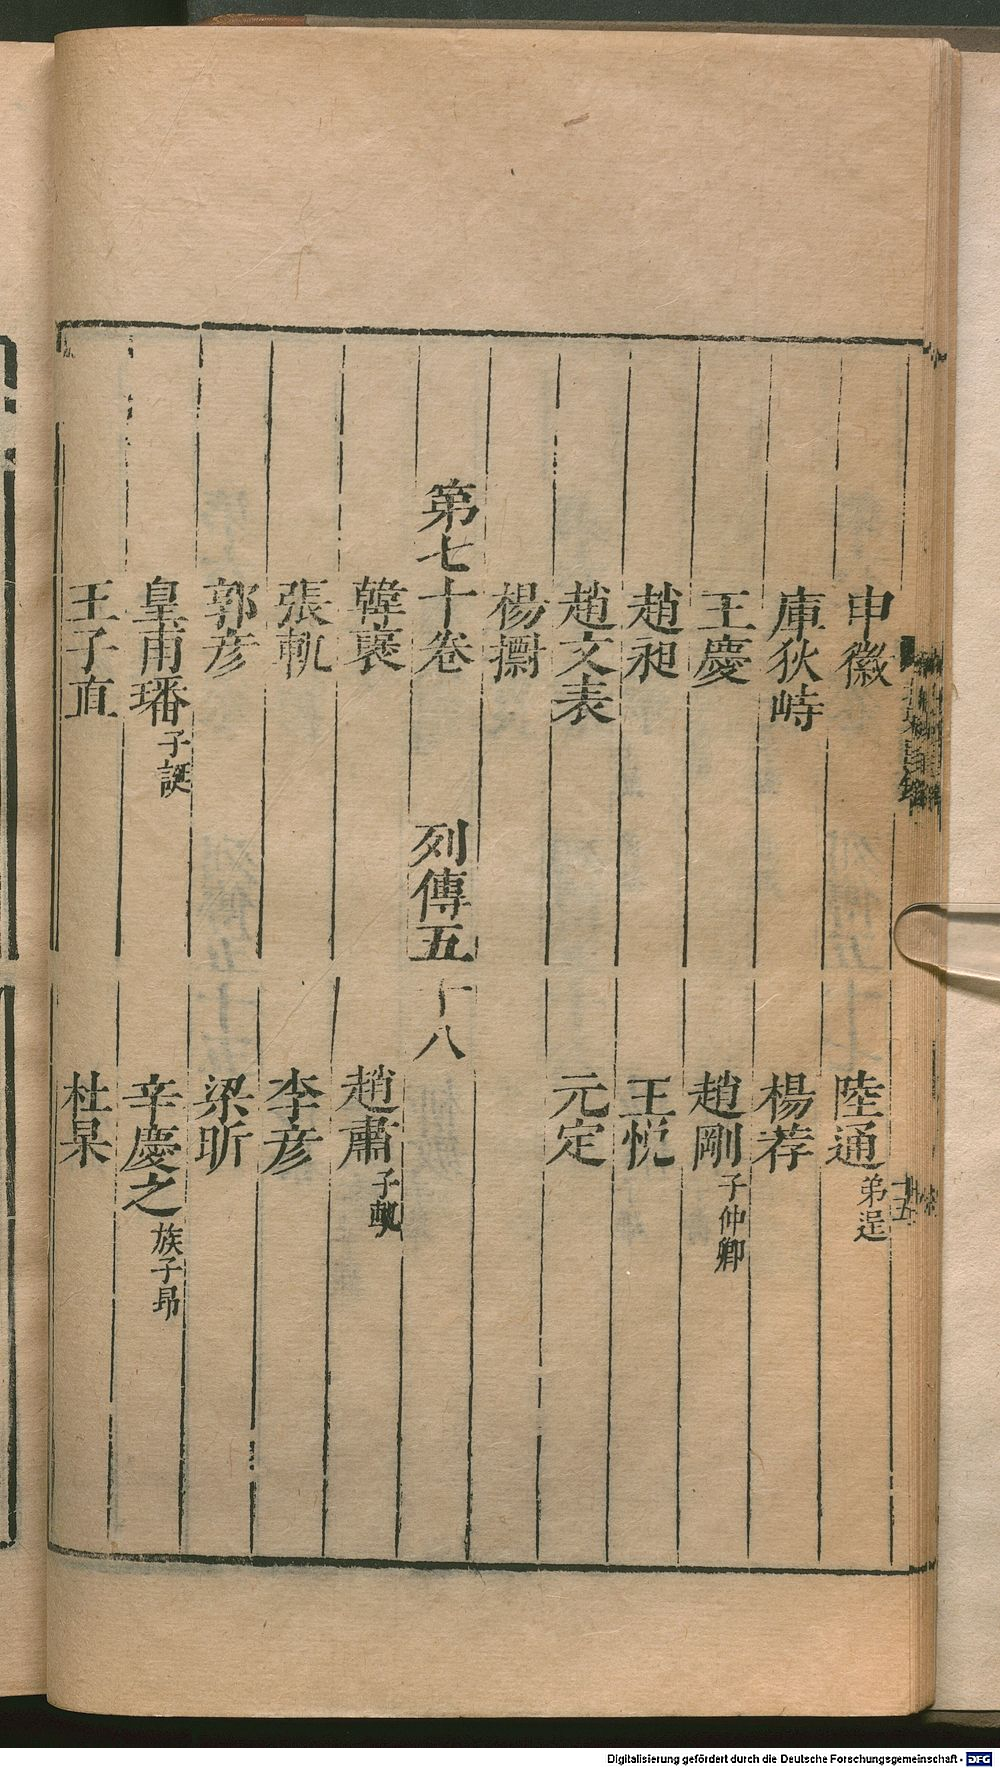 申徽　陸通弟逞
庫狄峙　楊荐
王慶　趙剛子仲卿
趙昶　王悅
趙文表　元定
楊㯹
第七十卷　列傳五十八
韓褒　趙肅子軌
張軌　李彥
郭彥　梁昕
皇甫璠子誕　辛慶之族子昂
王子直　杜杲
十五
Digitalisierung gefördert durch die Deutsche Forschungsgemeinschaft - DFG